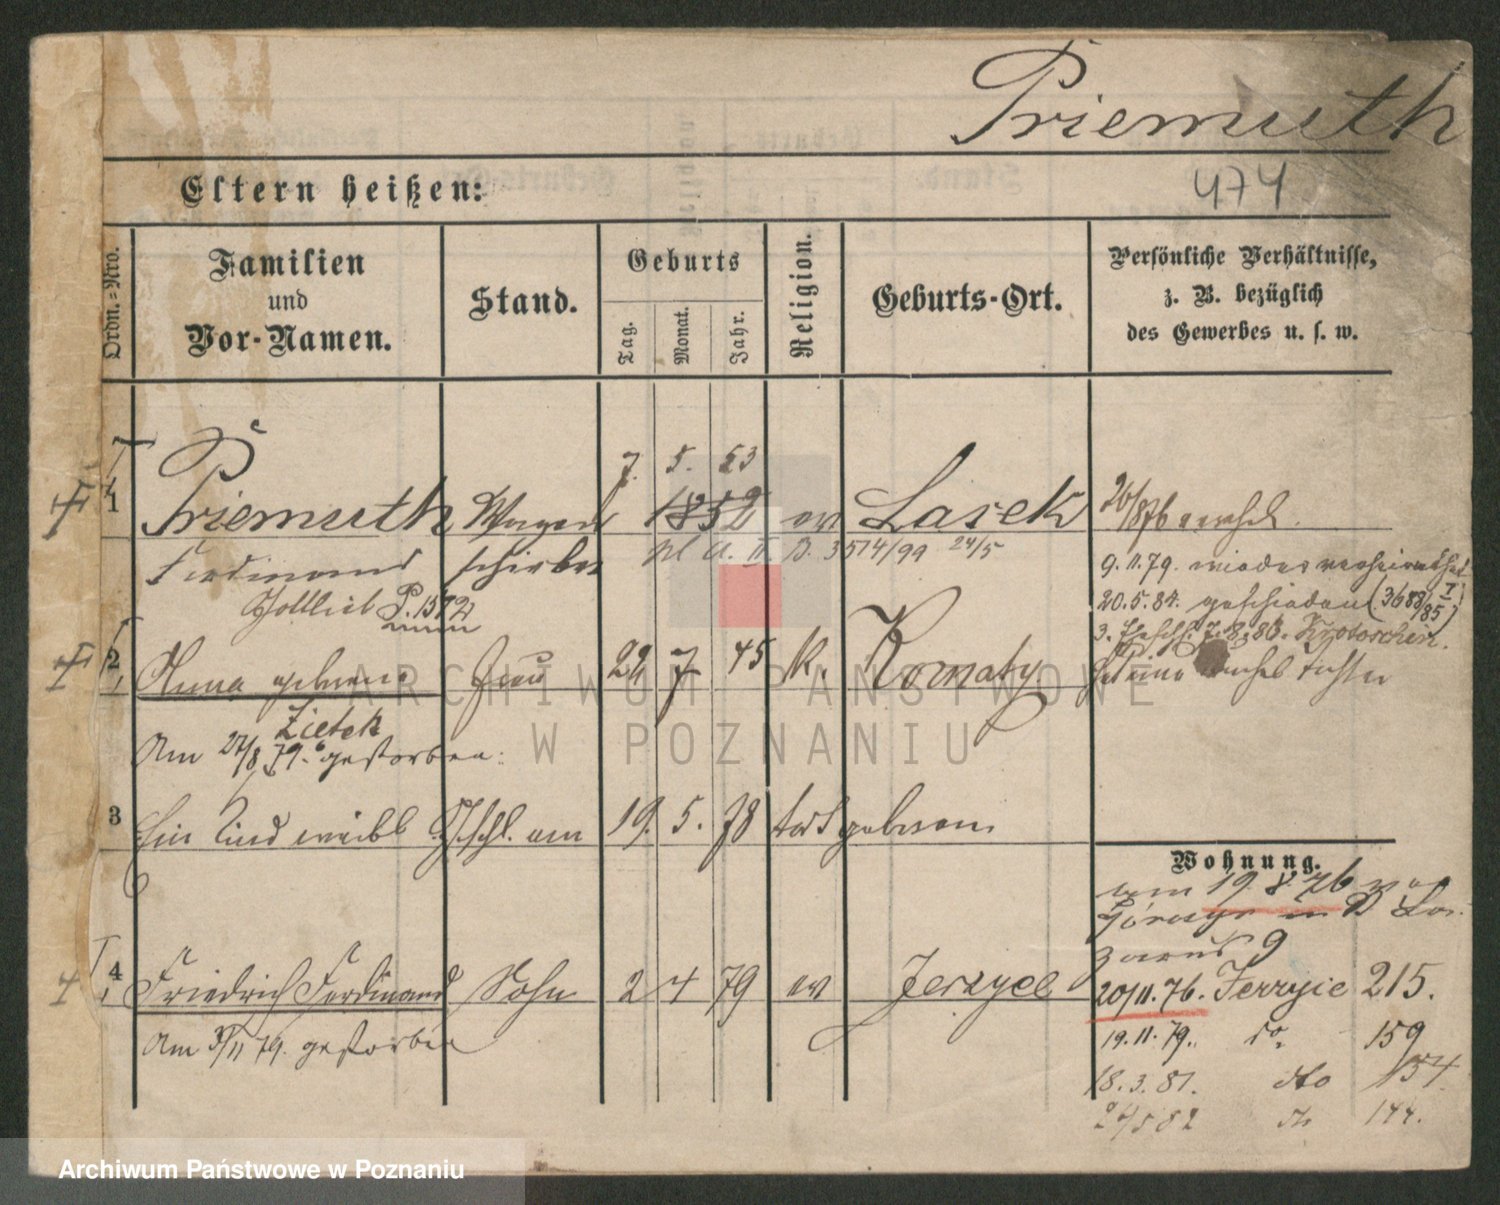 Priemuth
474
Eltern heißen:
Ordn.=Nro.
Familien
und
Vor-Namen.
Stand.
Geburts
Tag.
Monat.
Jahr.
Religion.
Geburts-Ort.
Persönliche Verhältnisse,
z. B. bezüglich
des Gewerbes u. s. w.
7. 5. 53
1 Priemuth Wagen 1852 ev Lasek 26/876
Ferdinand schieber 3514/99 24/5 9.11.79. wieder verheirathet
Gottlieb P. 1572 20.5.84. geschieden (3688 I/85)
3. 7.8.86. Krotoschin.
2 Anna geborene Frau 22 7 45 k. Kornaty
Zietek
Am 27/8 79. gestorben.
3 Ein Kind weibl Geschl. am 19. 5. 78 todt geboren
Wohnung.
am 19.8.76 von
Górczyn in Laz
zarus 9
4 Friedrich Ferdinand Sohn 2 4 79 ev Jerzyce 20/11.76. Jerzyce 215.
Am 3/11 79. gestorben 19.11.79. do. 159
18.3.81. dto 154
24/5 82 do 144.
ARCHIWUM PAŃSTWOWE
W POZNANIU
Archiwum Państwowe w Poznaniu